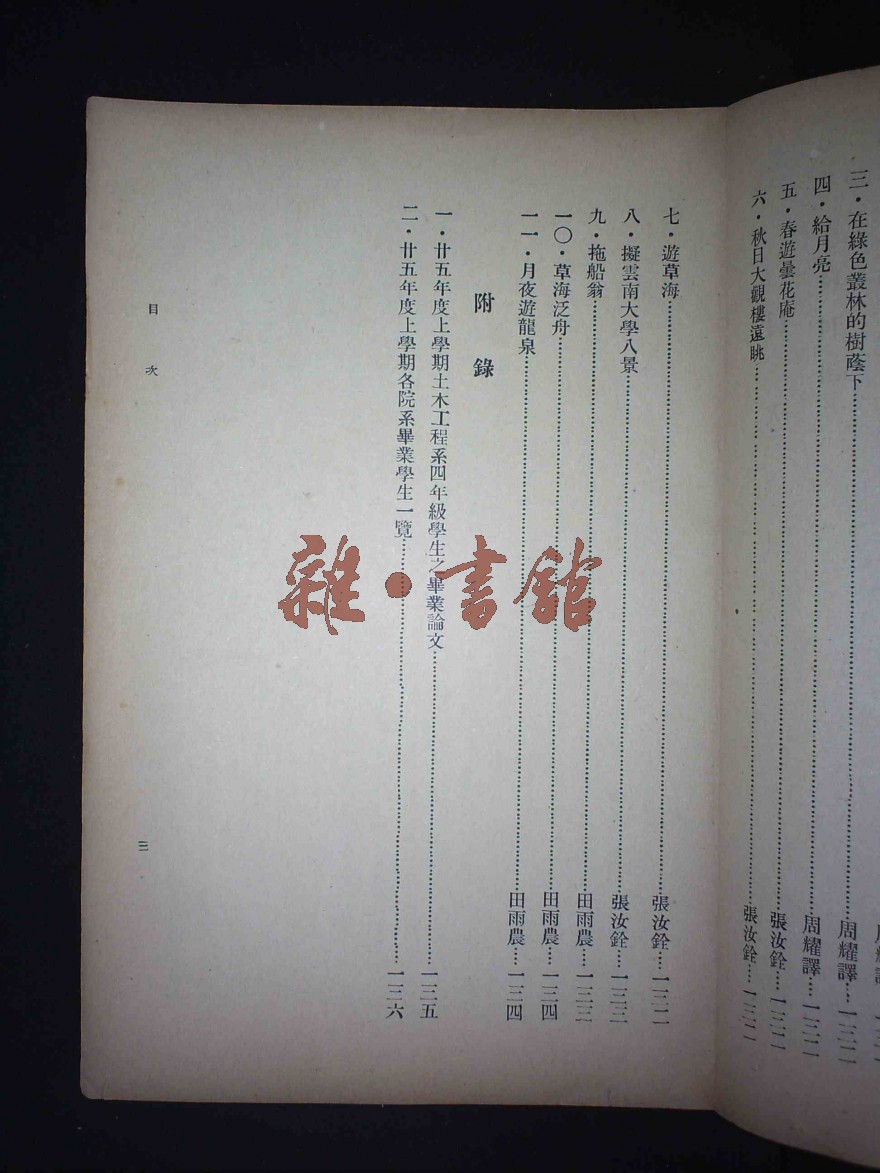 三・在綠色叢林的樹蔭下……周耀譯
四・給月亮……周耀譯……一三二
五・春遊曇花庵……張汝銓……一三二
六・秋日大觀樓遠眺……張汝銓……一三二
七・遊草海……張汝銓……一三二
八・擬雲南大學八景……張汝銓……一三三
九・拖船翁……田雨農……一三三
一〇・草海泛舟……田雨農……一三四
一一・月夜遊龍泉……田雨農……一三四
附錄
一・廿五年度上學期土木工程系四年級學生之畢業論文……一三五
二・廿五年度上學期各院系畢業學生一覽……一三六
目次
三
雜・書館